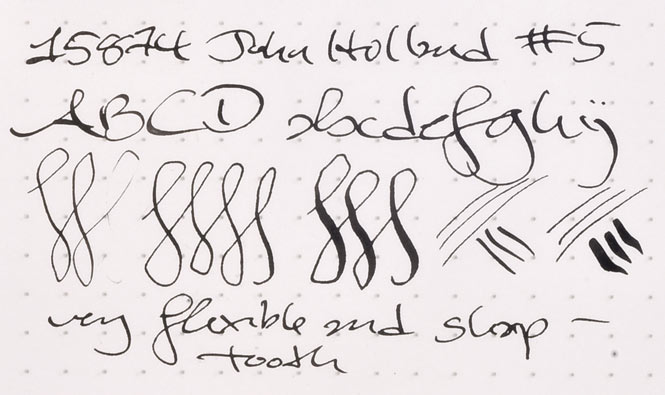 15874 John Holland #5
ABCD abcdefghij
very flexible and sharp –
tooth